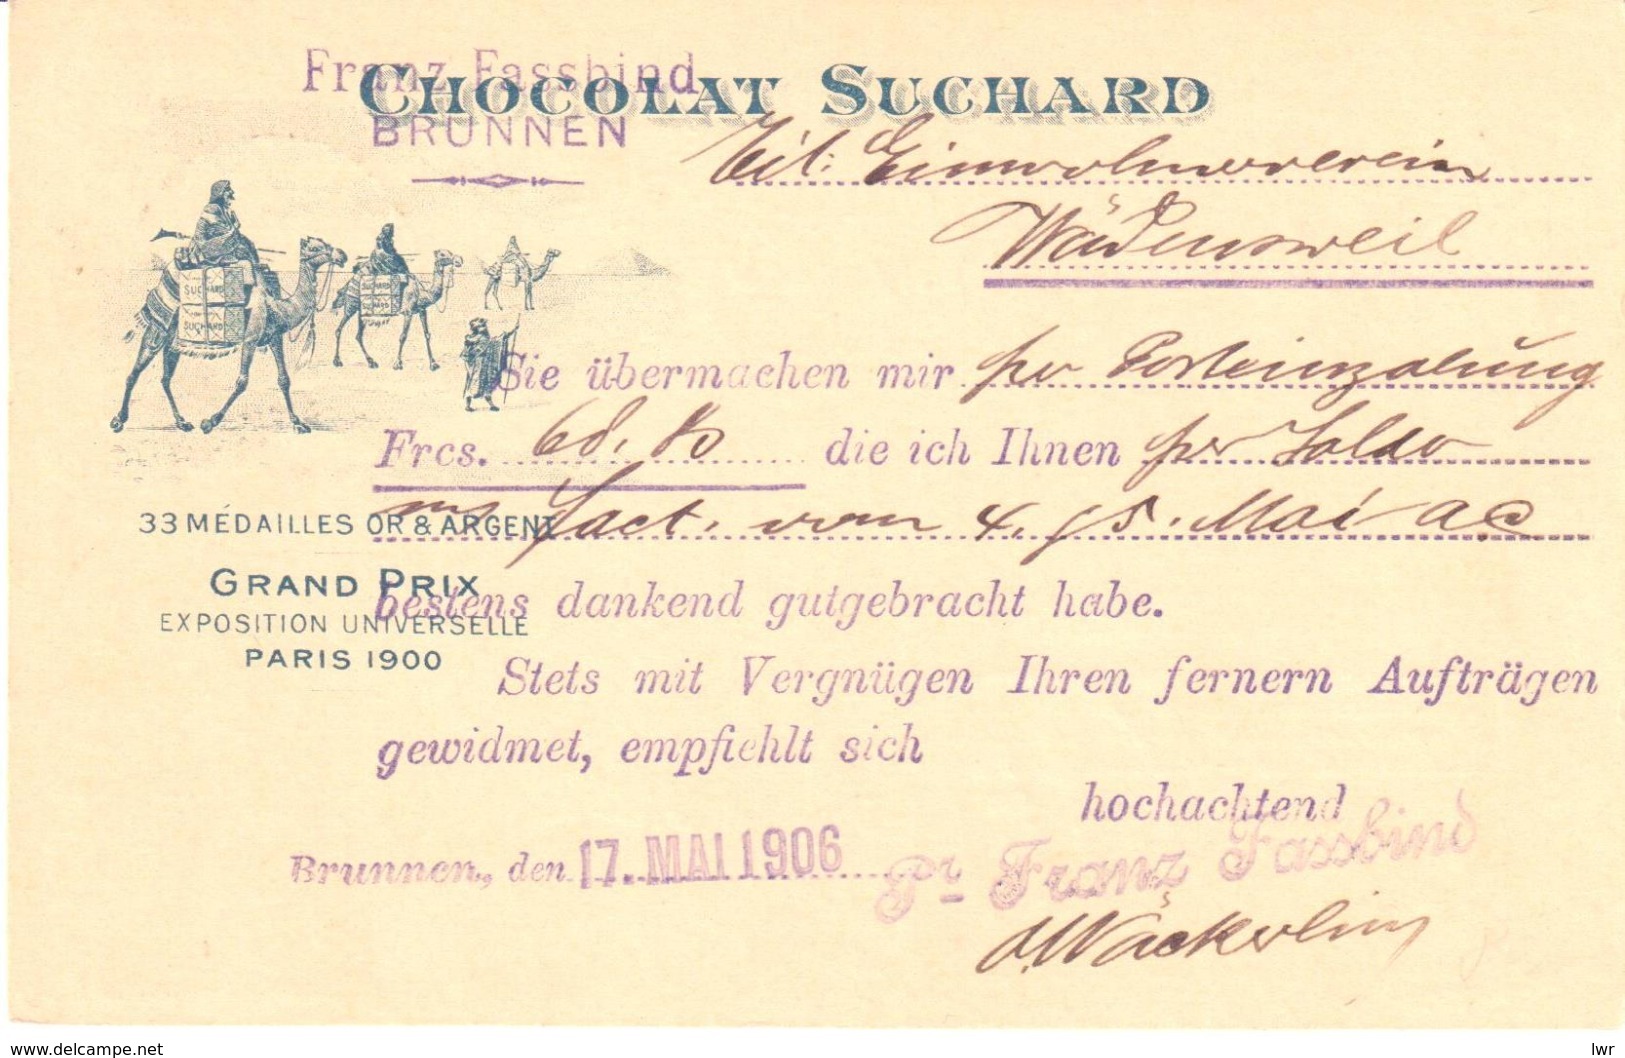 Franz Fassbind
CHOCOLAT SUCHARD
BRUNNEN
Tit. Einwohnerverein
Wädensweil
SUCHARD
SUCHARD
SUCHARD
SUCHARD
Sie übermachen mir per Posteinzahlung
Frcs. 68.80 die ich Ihnen per Saldo
ms Fact. vom 4./5. Mai a.c.
33 MÉDAILLES OR & ARGENT
GRAND PRIX
bestens dankend gutgebracht habe.
EXPOSITION UNIVERSELLE
PARIS 1900
Stets mit Vergnügen Ihren fernern Aufträgen
gewidmet, empfiehlt sich
hochachtend
Brunnen, den 17. MAI 1906
Pr. Franz Fassbind
www.delcampe.net
lwr